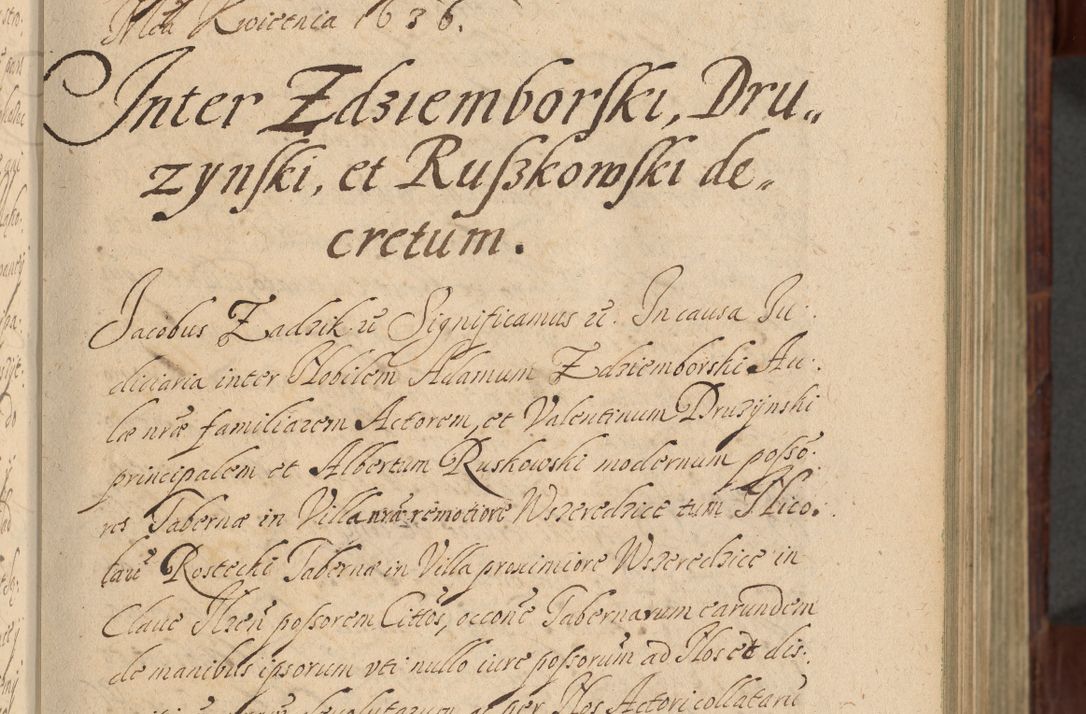 Mca Kwietnia 1636.
Inter Zdziemborski, Dru„
zynski, et Rußkowski de„
cretum.
Jacobus Zadzik etc Significamus etc. In causa Ju:
diciaria inter Nobilem Adamum Zdziemborski Au:
læ nræ familiarem Actorem, et Valentinum Druzynski
principalem et Albertum Ruskowski modernum posso:
res Tabernæ in Villa nra remotiore Wszeredzice tum Nico:
laū Rostecki Tabernæ in Villa proximiore Wszeredzice in
Clave Ilzen possorem Cittos, occone Tabernarum earundem
de manibus ipsorum uti nullo iure possorum ad Nos et dis:
per Nos Actori collatarū